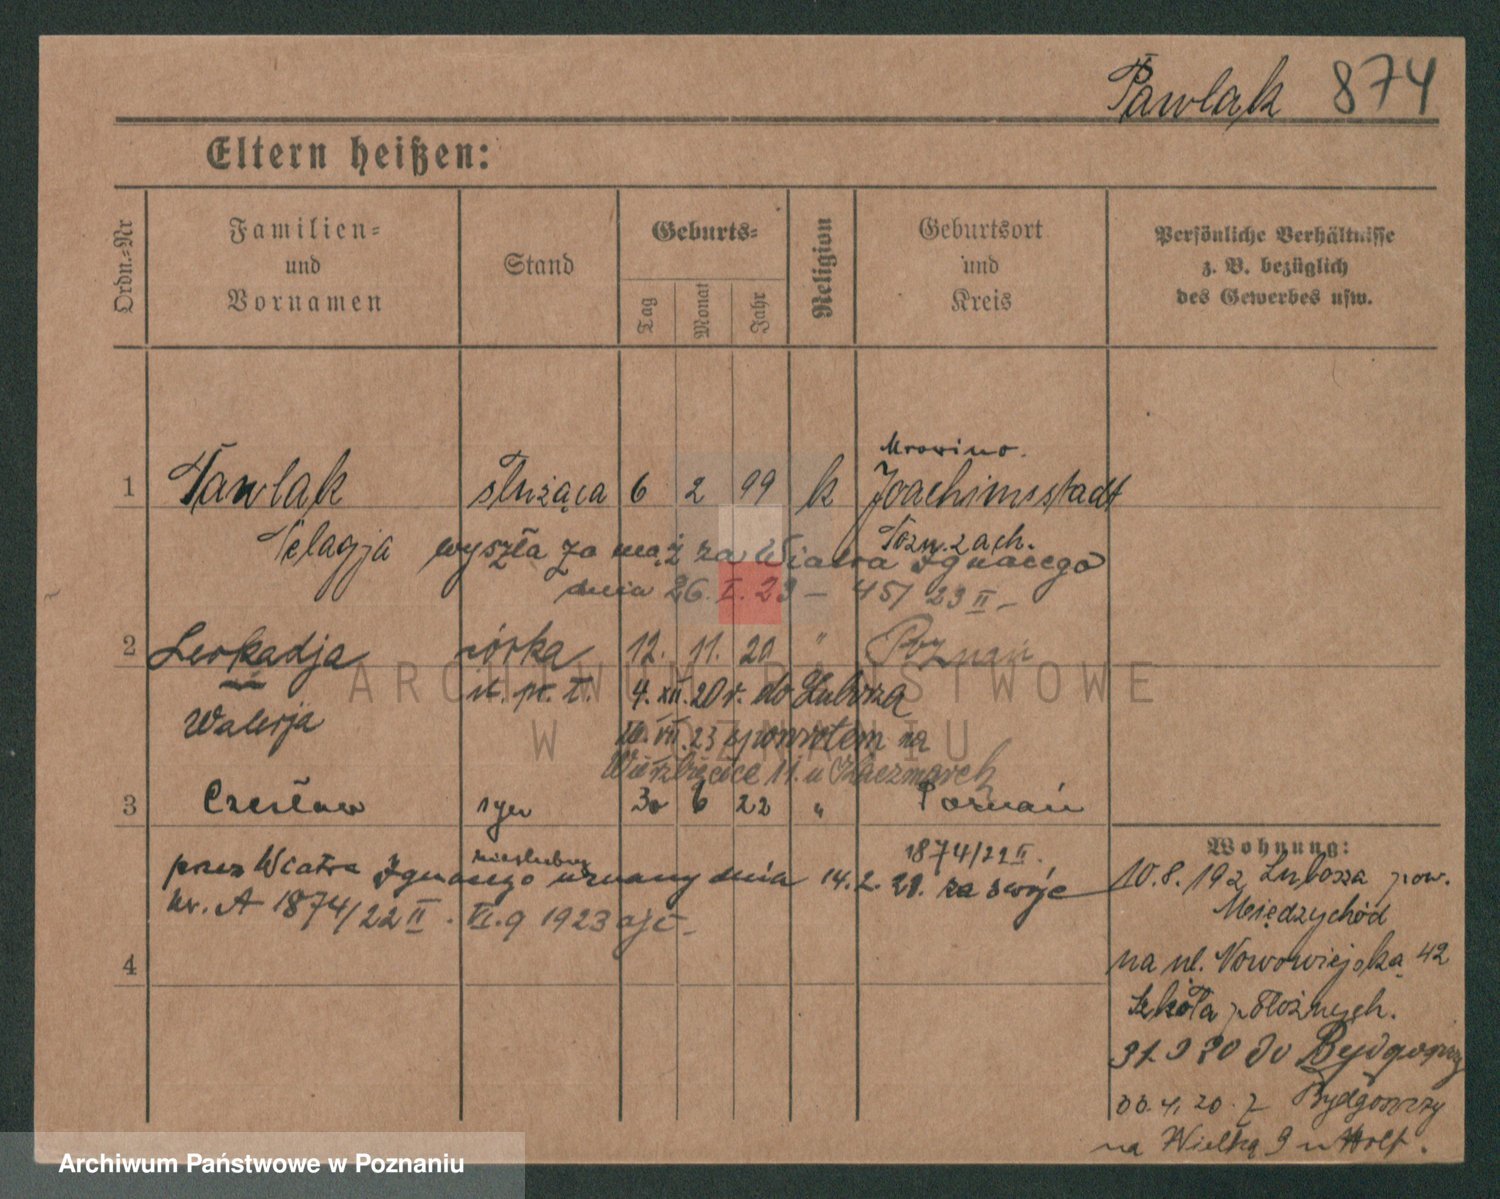 Pawlak 874
Eltern heißen:
Ordn.=Nr
Familien=
und
Vornamen
Stand
Geburts=
Tag
Monat
Jahr
Religion
Geburtsort
und
Kreis
Persönliche Verhältnisse
z. B. bezüglich
des Gewerbes usw.
Mrowino.
1 Pawlak służąca 6 2 99 k Joachimsstadt
Pozn. zach.
Pelagja wyszła za mąż za Wiatra Ignacego
dnia 26. I. 23 — 451 23 II —
2 Leokadja córka 12. 11. 20 " Poznań
4. XII. 20 r. do
Walerja
VII. 23 z powrotem na
Wierzbięcice 11. u Kaczmarek
3 Czesław syn 30 6 22 " Poznań
nieślubny 1874/22 II.
przez Wiatra Ignacego uznany dnia 14. 2. 28. za swoje
nr. A 1874/22 II. VI. 9 1923
4
Wohnung:
10. 8. 192 Lubosza pow.
Międzychód
na ul. Nowowiejska 42
Szkoła położnych.
do Bydgoszczy
4. 20. z Bydgoszczy
na Wielką 9 u
ARCHIWUM PAŃSTWOWE
W POZNANIU
Archiwum Państwowe w Poznaniu